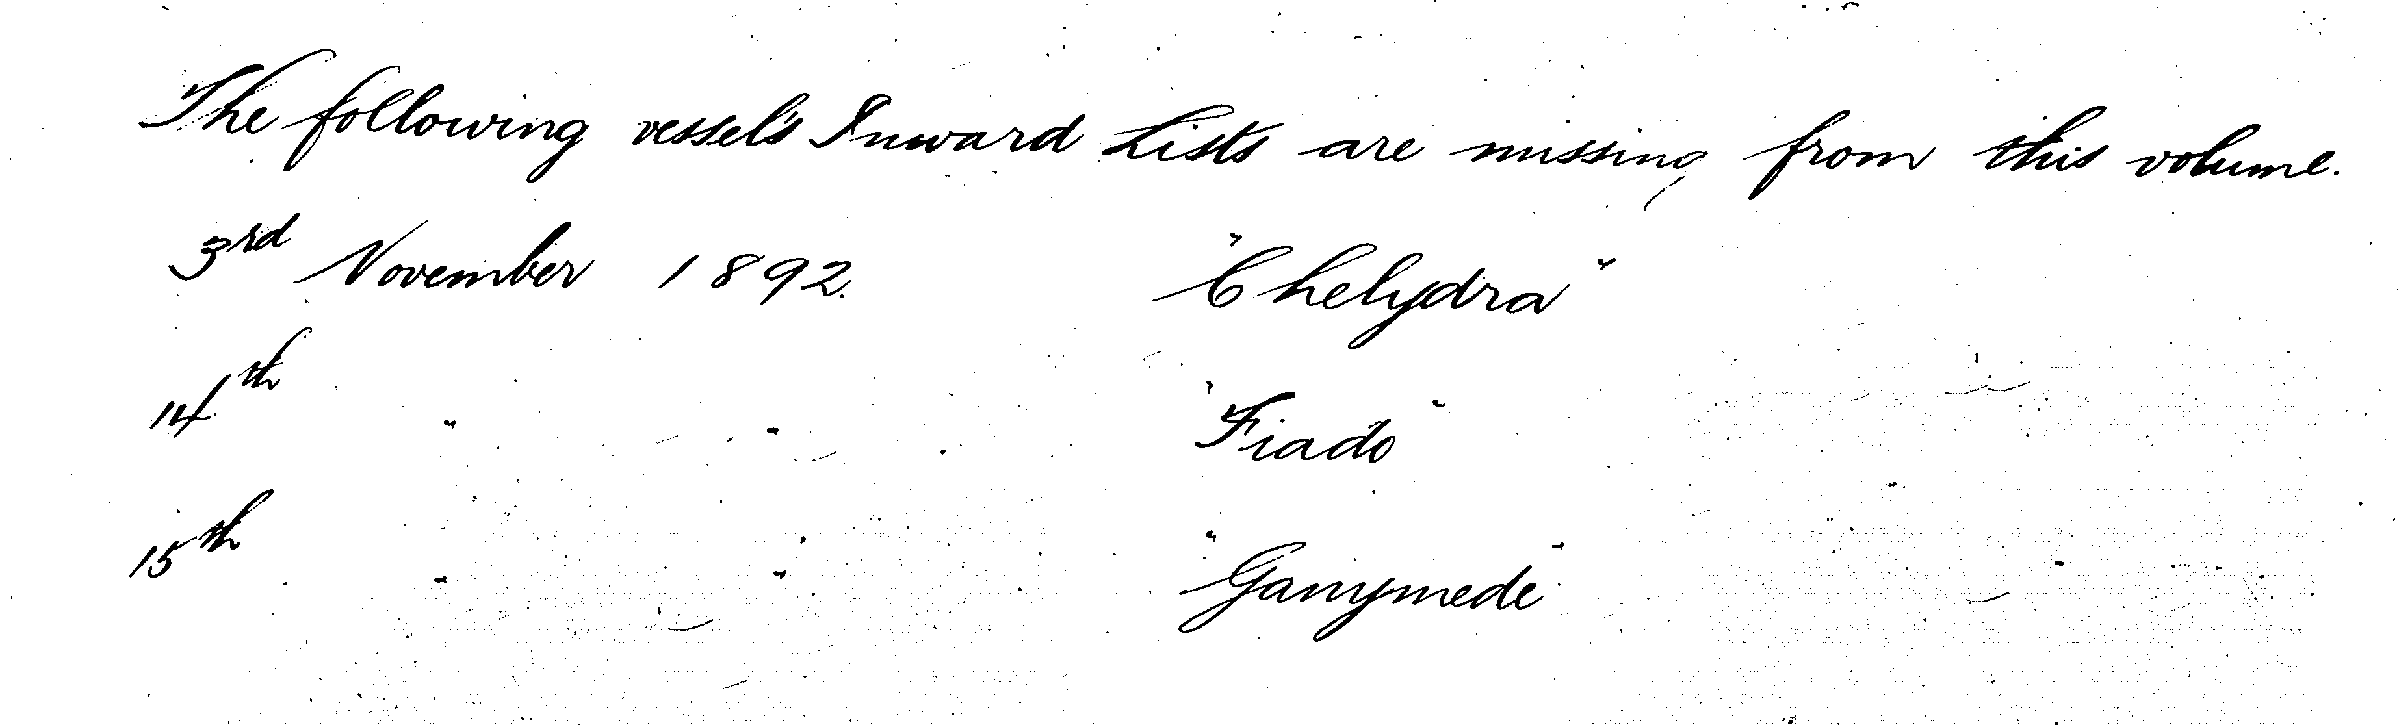 The following vessel's Inward Lists are missing from this volume.
3rd November 1892. "Chelydra"
14th " " "Fiado"
15th " " "Ganymede"